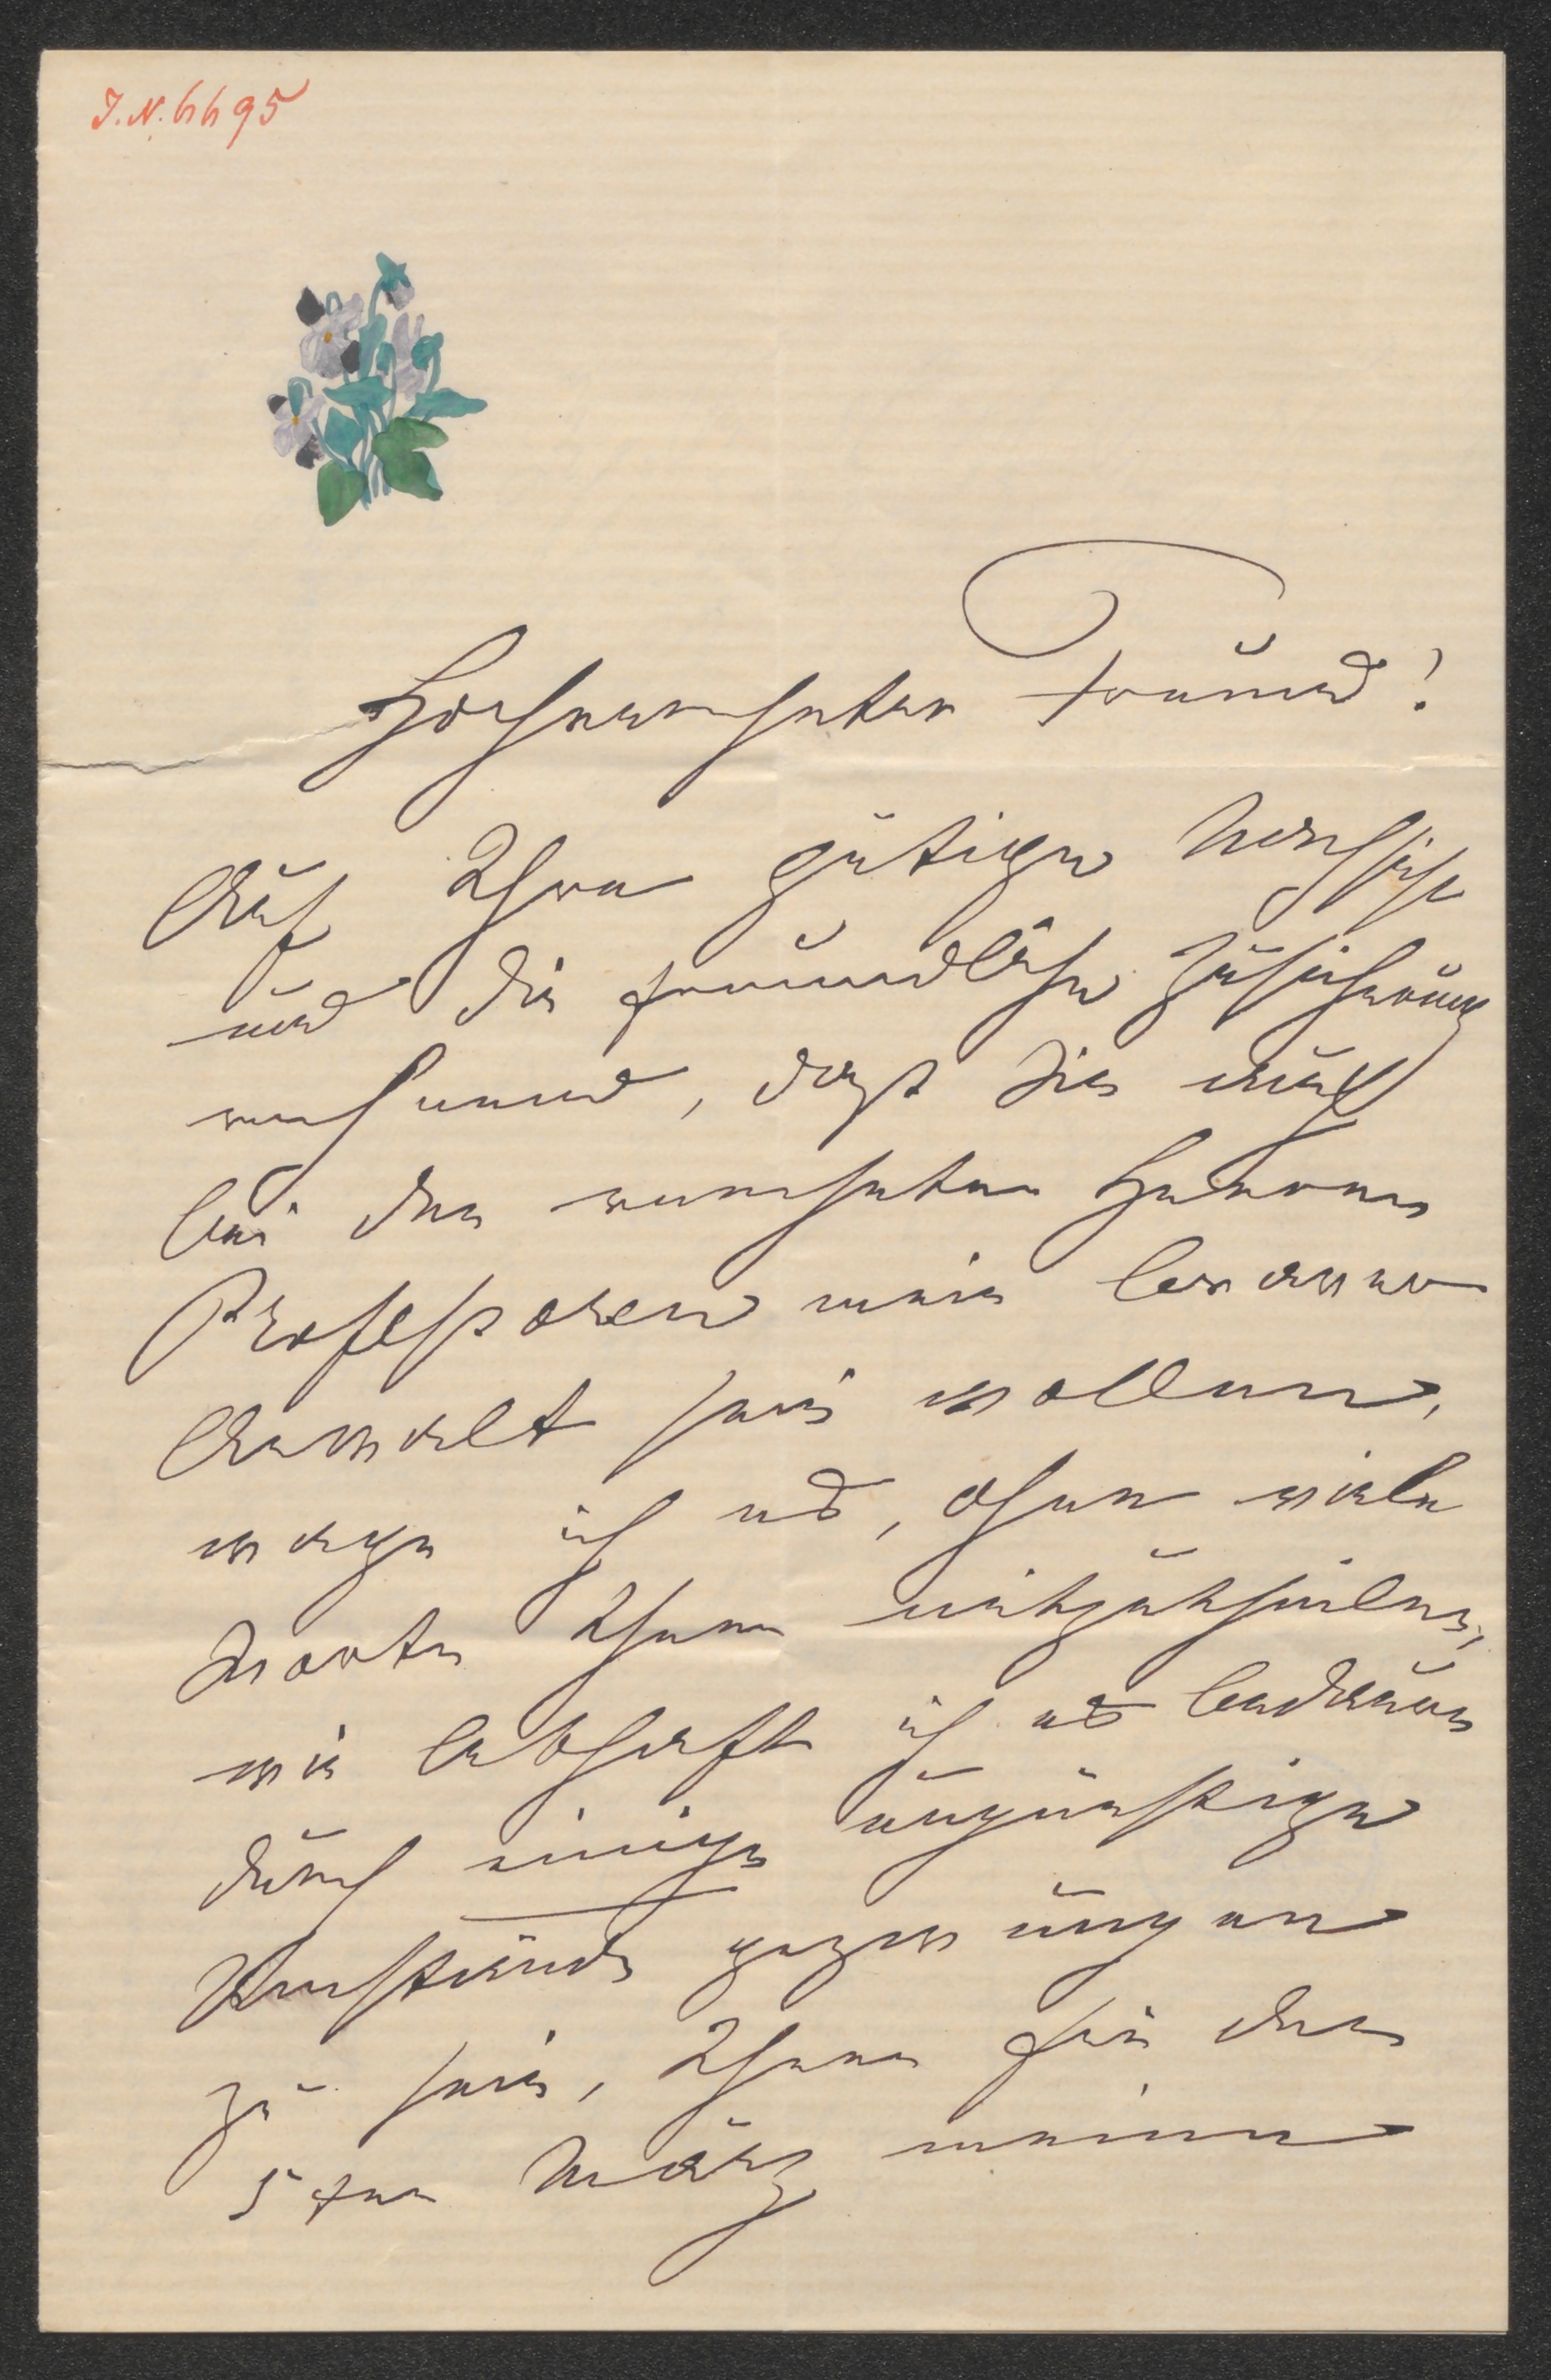 J.N. 6695
Hochverehrter Freund!
Auf Ihre gütige Nachsicht
und die freundliche Zusicherung
rechnend, daß Sie auch
bei den verehrten Herren
Professoren mein braver
Anwalt sein wollen,
wage ich es, ohne viele
Worte Ihnen mitzutheilen,
wie lebhaft ich es bedaure
durch einige ungünstige
Umstände gezwungen
zu sein, Ihnen für den
5ten März meine